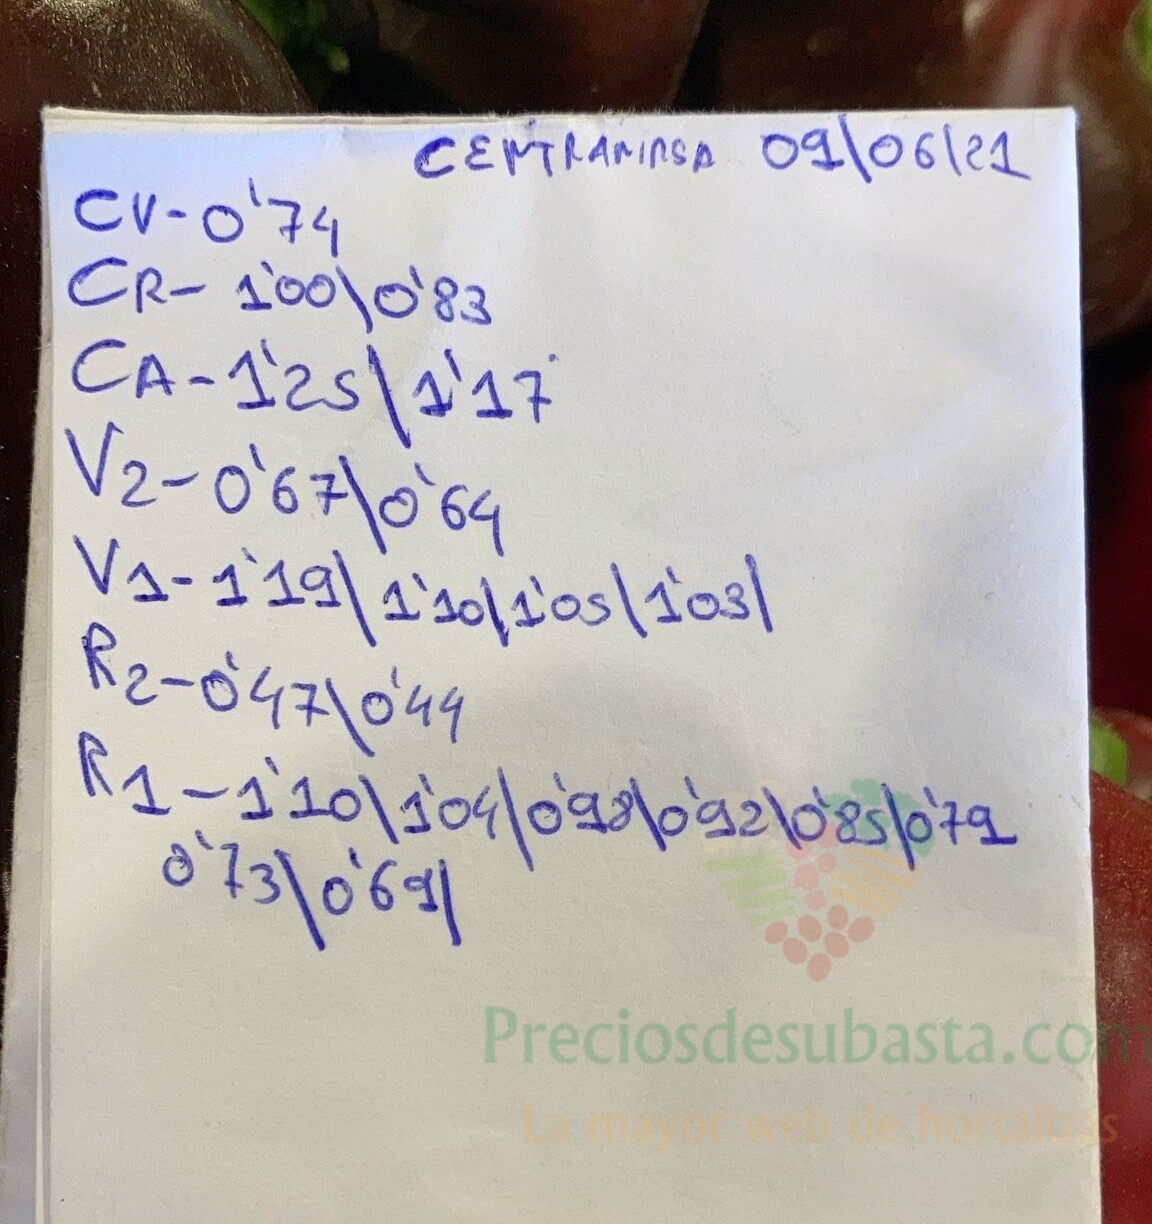 CENTRAMIRSA 09\06\21
CV-0'74
CR-1'00\0'83
CA-1'25\1'17
V2-0'67\0'64
V1-1'19\1'10\1'05\1'03/
R2-0'47\0'44
R1-1'10\1'04/0'98\0'92\0'85\0'79
0'73\0'69/
Preciosdesubasta.com
La mayor web de hortalizas